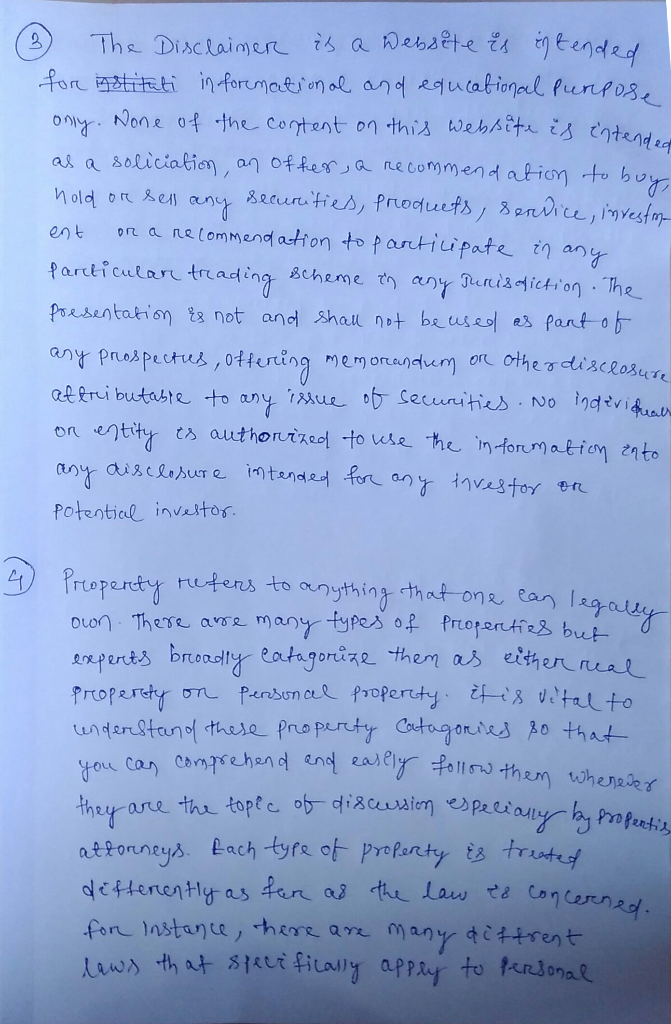 3 The Disclaimer is a website is intended
for informational and educational purpose
only. None of the content on this website is intended
as a soliciation, an offer, a recommendation to buy,
hold or sell any securities, products, service, investm-
ent or a recommendation to participate in any
particular trading scheme in any Jurisdiction. The
presentation is not and shall not be used as part of
any prospectus, offering memorandum or other disclosure
attributable to any issue of securities. No individuals
or entity is authorized to use the information into
any disclosure intended for any investor or
potential investor.
4 Property refers to anything that one can legally
own. There are many types of properties but
experts broadly catagorize them as either real
property or personal property. it is vital to
understand these property catagories so that
you can comprehend and easily follow them whenever
they are the topic of discussion especially by propertis
attorneys. Each type of property is treated
differently as far as the law is concerned.
for Instance, there are many diffrent
laws that specifically apply to personal